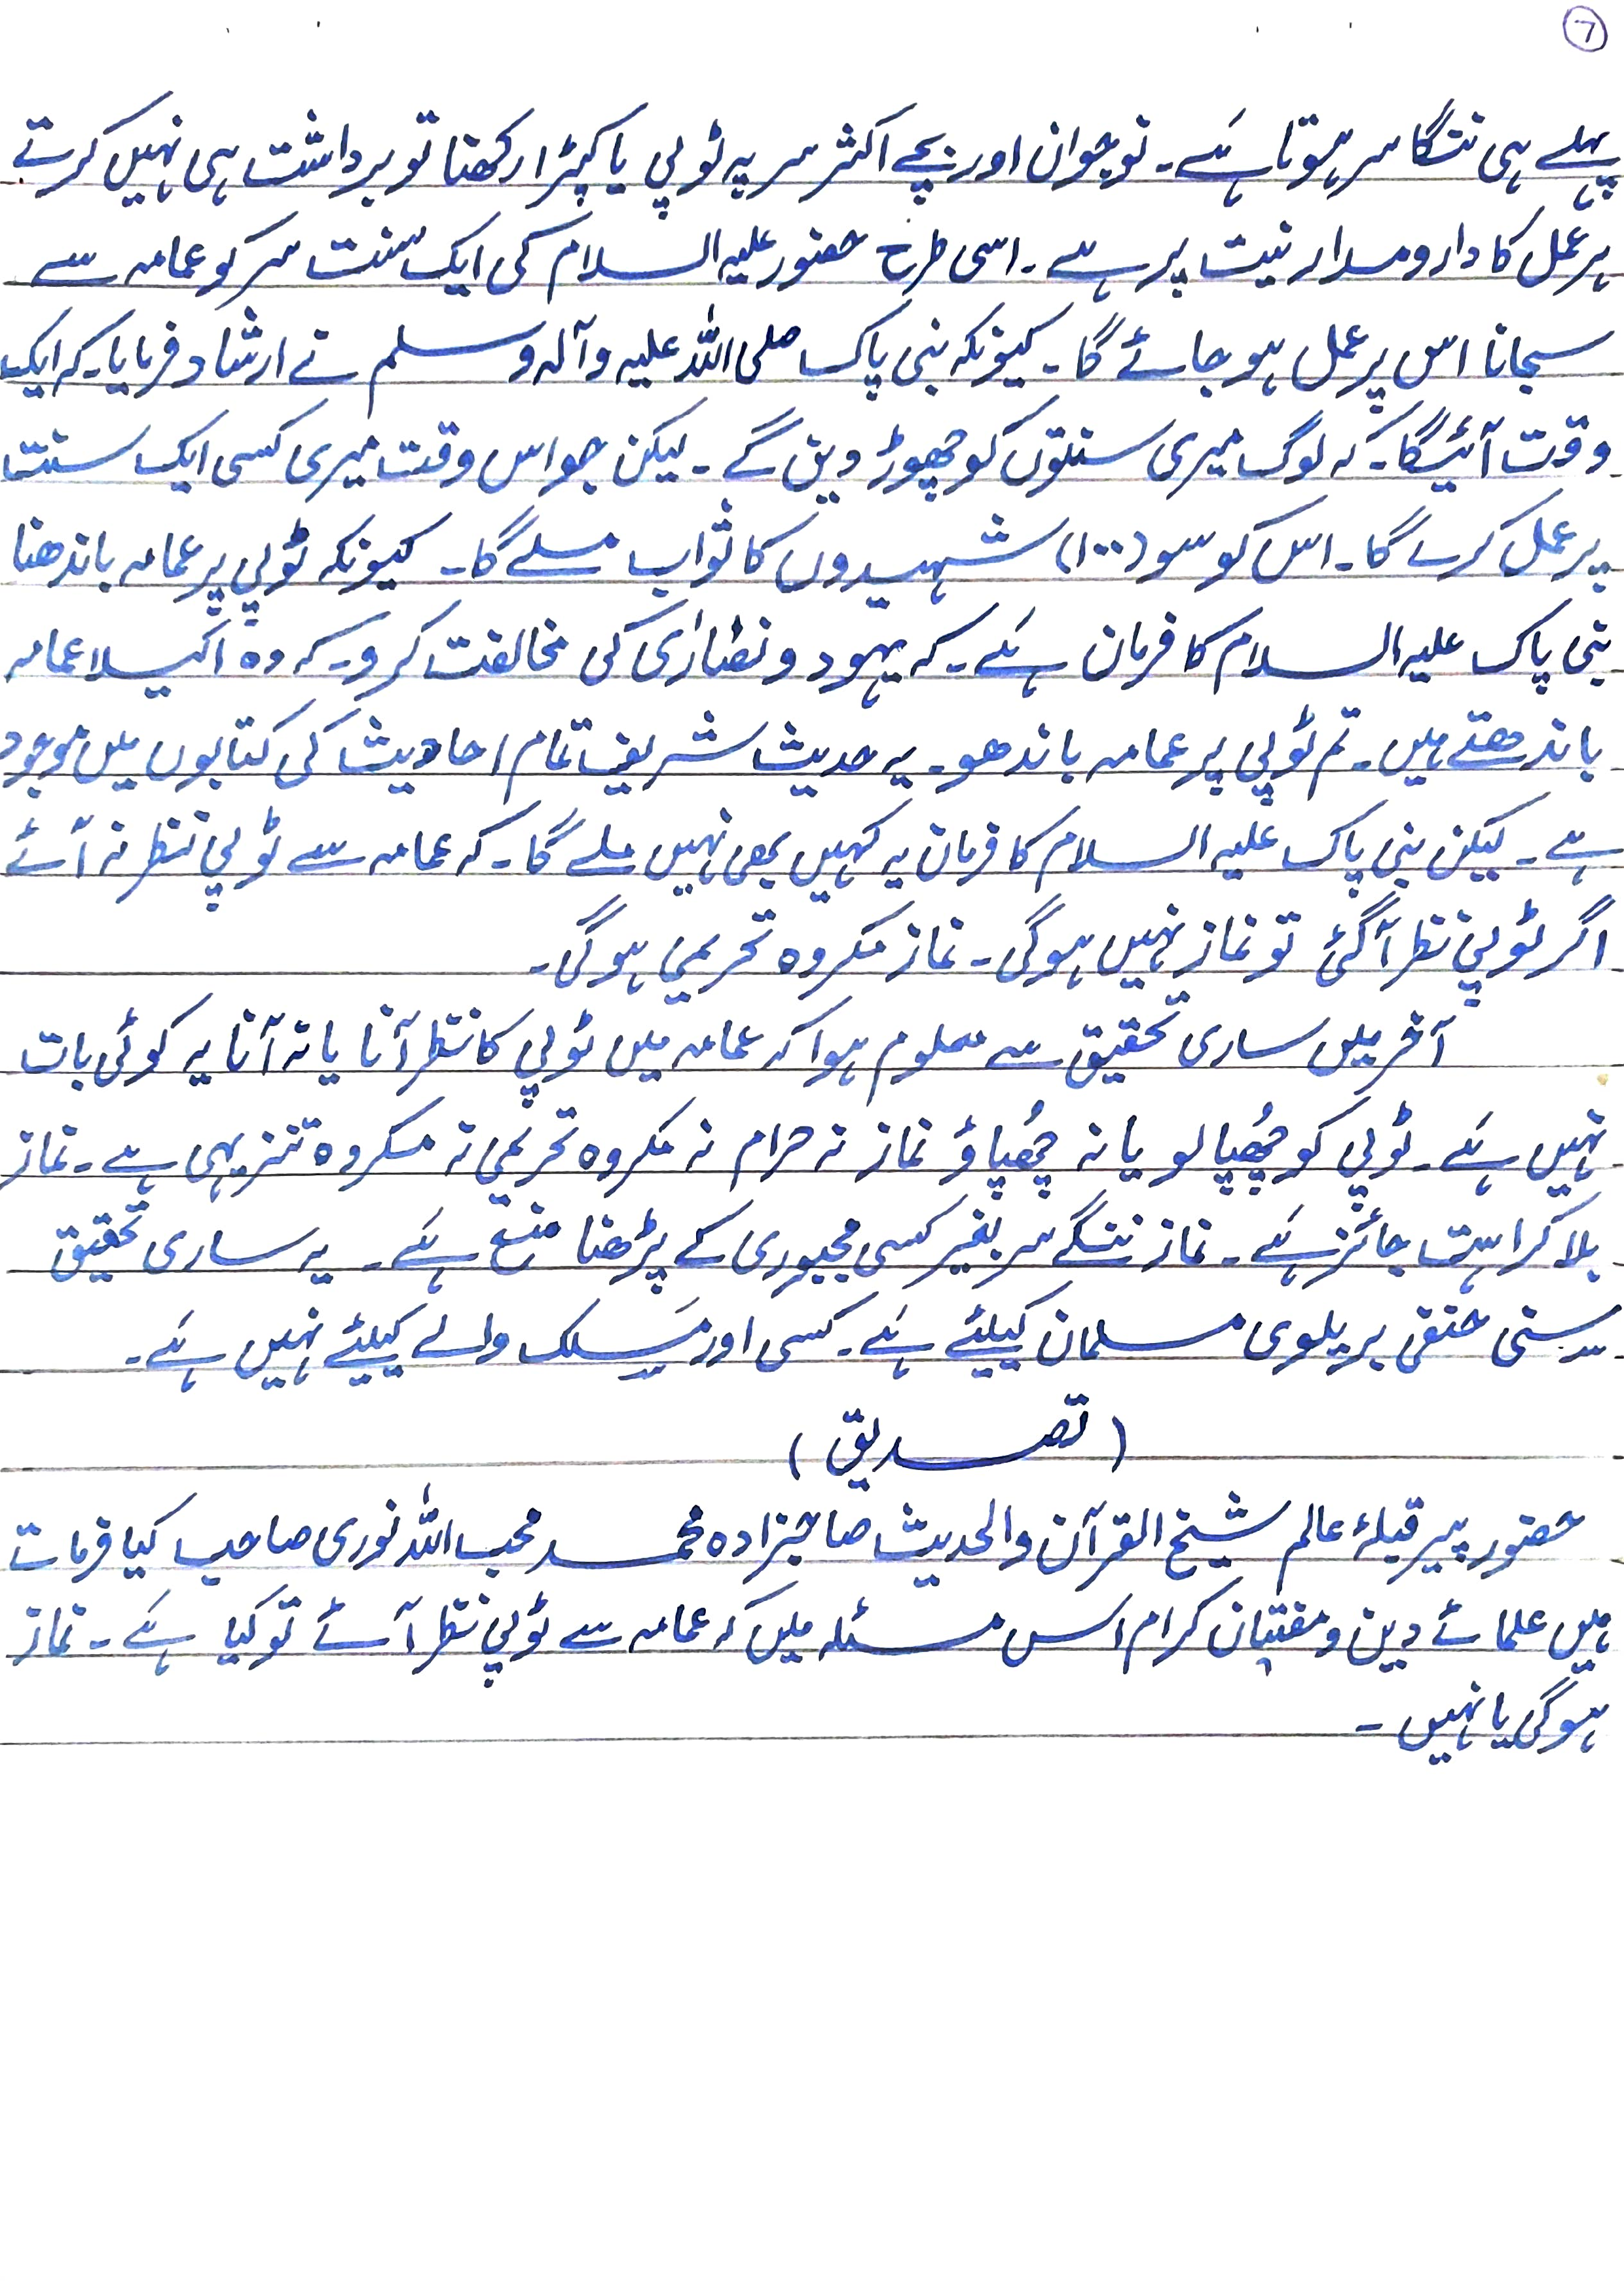 ۷
پہلے ہی ننگا سر ہوتا ہَے۔ نوجوان اور بچے اکثر سر پہ ٹوپی یا کپڑا رکھنا تو برداشت ہی نہیں کرتے
ہر عمل کا دارومدار نیت پر ہے۔ اسی طرح حضور علیہ السلام کی ایک سنت سر کو عمامہ سے
سجانا اس پر عمل ہو جائے گا۔ کیونکہ نبی پاک صلی اللہ علیہ وآلہ وسلم نے ارشاد فرمایا۔ کہ ایک
وقت آئیگا۔ کہ لوگ میری سنتوں کو چھوڑ دیں گے۔ لیکن جو اس وقت میری کسی ایک سنت
پر عمل کرے گا۔ اس کو سو (۱۰۰) شہیدوں کا ثواب ملے گا۔ کیونکہ ٹوپی پر عمامہ باندھنا
نبی پاک علیہ السلام کا فرمان ہَے۔ کہ یہود و نصٰارٰی کی مخالفت کرو۔ کہ وہ اکیلا عمامہ
باندھتے ہیں۔ تم ٹوپی پر عمامہ باندھو۔ یہ حدیث شریف تمام احادیث کی کتابوں میں موجود
ہے۔ لیکن نبی پاک علیہ السلام کا فرمان یہ کہیں بھی نہیں ملے گا۔ کہ عمامہ سے ٹوپی نظر نہ آئے
اگر ٹوپی نظر آگئی تو نماز نہیں ہوگی۔ نماز مکروہ تحریمی ہوگی۔
آخر میں ساری تحقیق سے معلوم ہوا کہ عمامہ میں ٹوپی کا نظر آنا یا نہ آنا یہ کوئی بات
نہیں ہَے۔ ٹوپی کو چُھپا لو یا نہ چُھپاؤ نماز نہ حرام نہ مکروہ تحریمی نہ مکروہ تنزیہی ہے۔ نماز
بلا کراہت جائز ہَے۔ نماز ننگے سر بغیر کسی مجبوری کے پڑھنا منع ہَے۔ یہ ساری تحقیق
سنی حنفی بریلوی مسلمان کیلئے ہَے۔ کسی اور مَسلک والے کیلئے نہیں ہَے۔
(تصدیق)
حضور پیر قبلۂ عالم شیخ القرآن والحدیث صاحبزادہ محمد محب اللہ نوری صاحب کیا فرماتے
ہیں علمائے دین و مفتیان کرام اس مسئلہ میں کہ عمامہ سے ٹوپی نظر آئے تو کیا ہَے۔ نماز
ہوگی یا نہیں۔